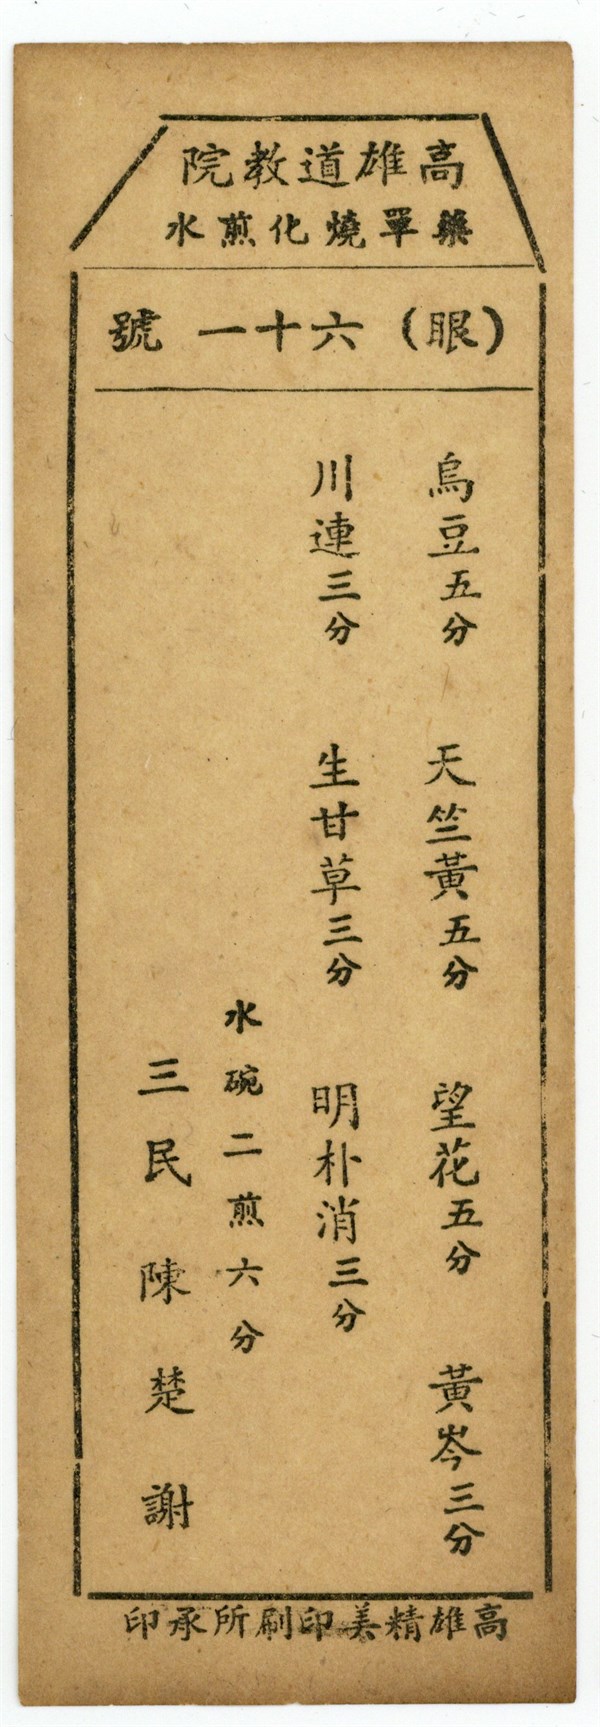 高雄道教院
藥單燒化煎水
（眼）六十一號
烏豆五分　天竺黃五分　望花五分　黃岑三分
川連三分　生甘草三分　明朴消三分
水碗二煎六分
三民陳楚謝
高雄精美印刷所承印